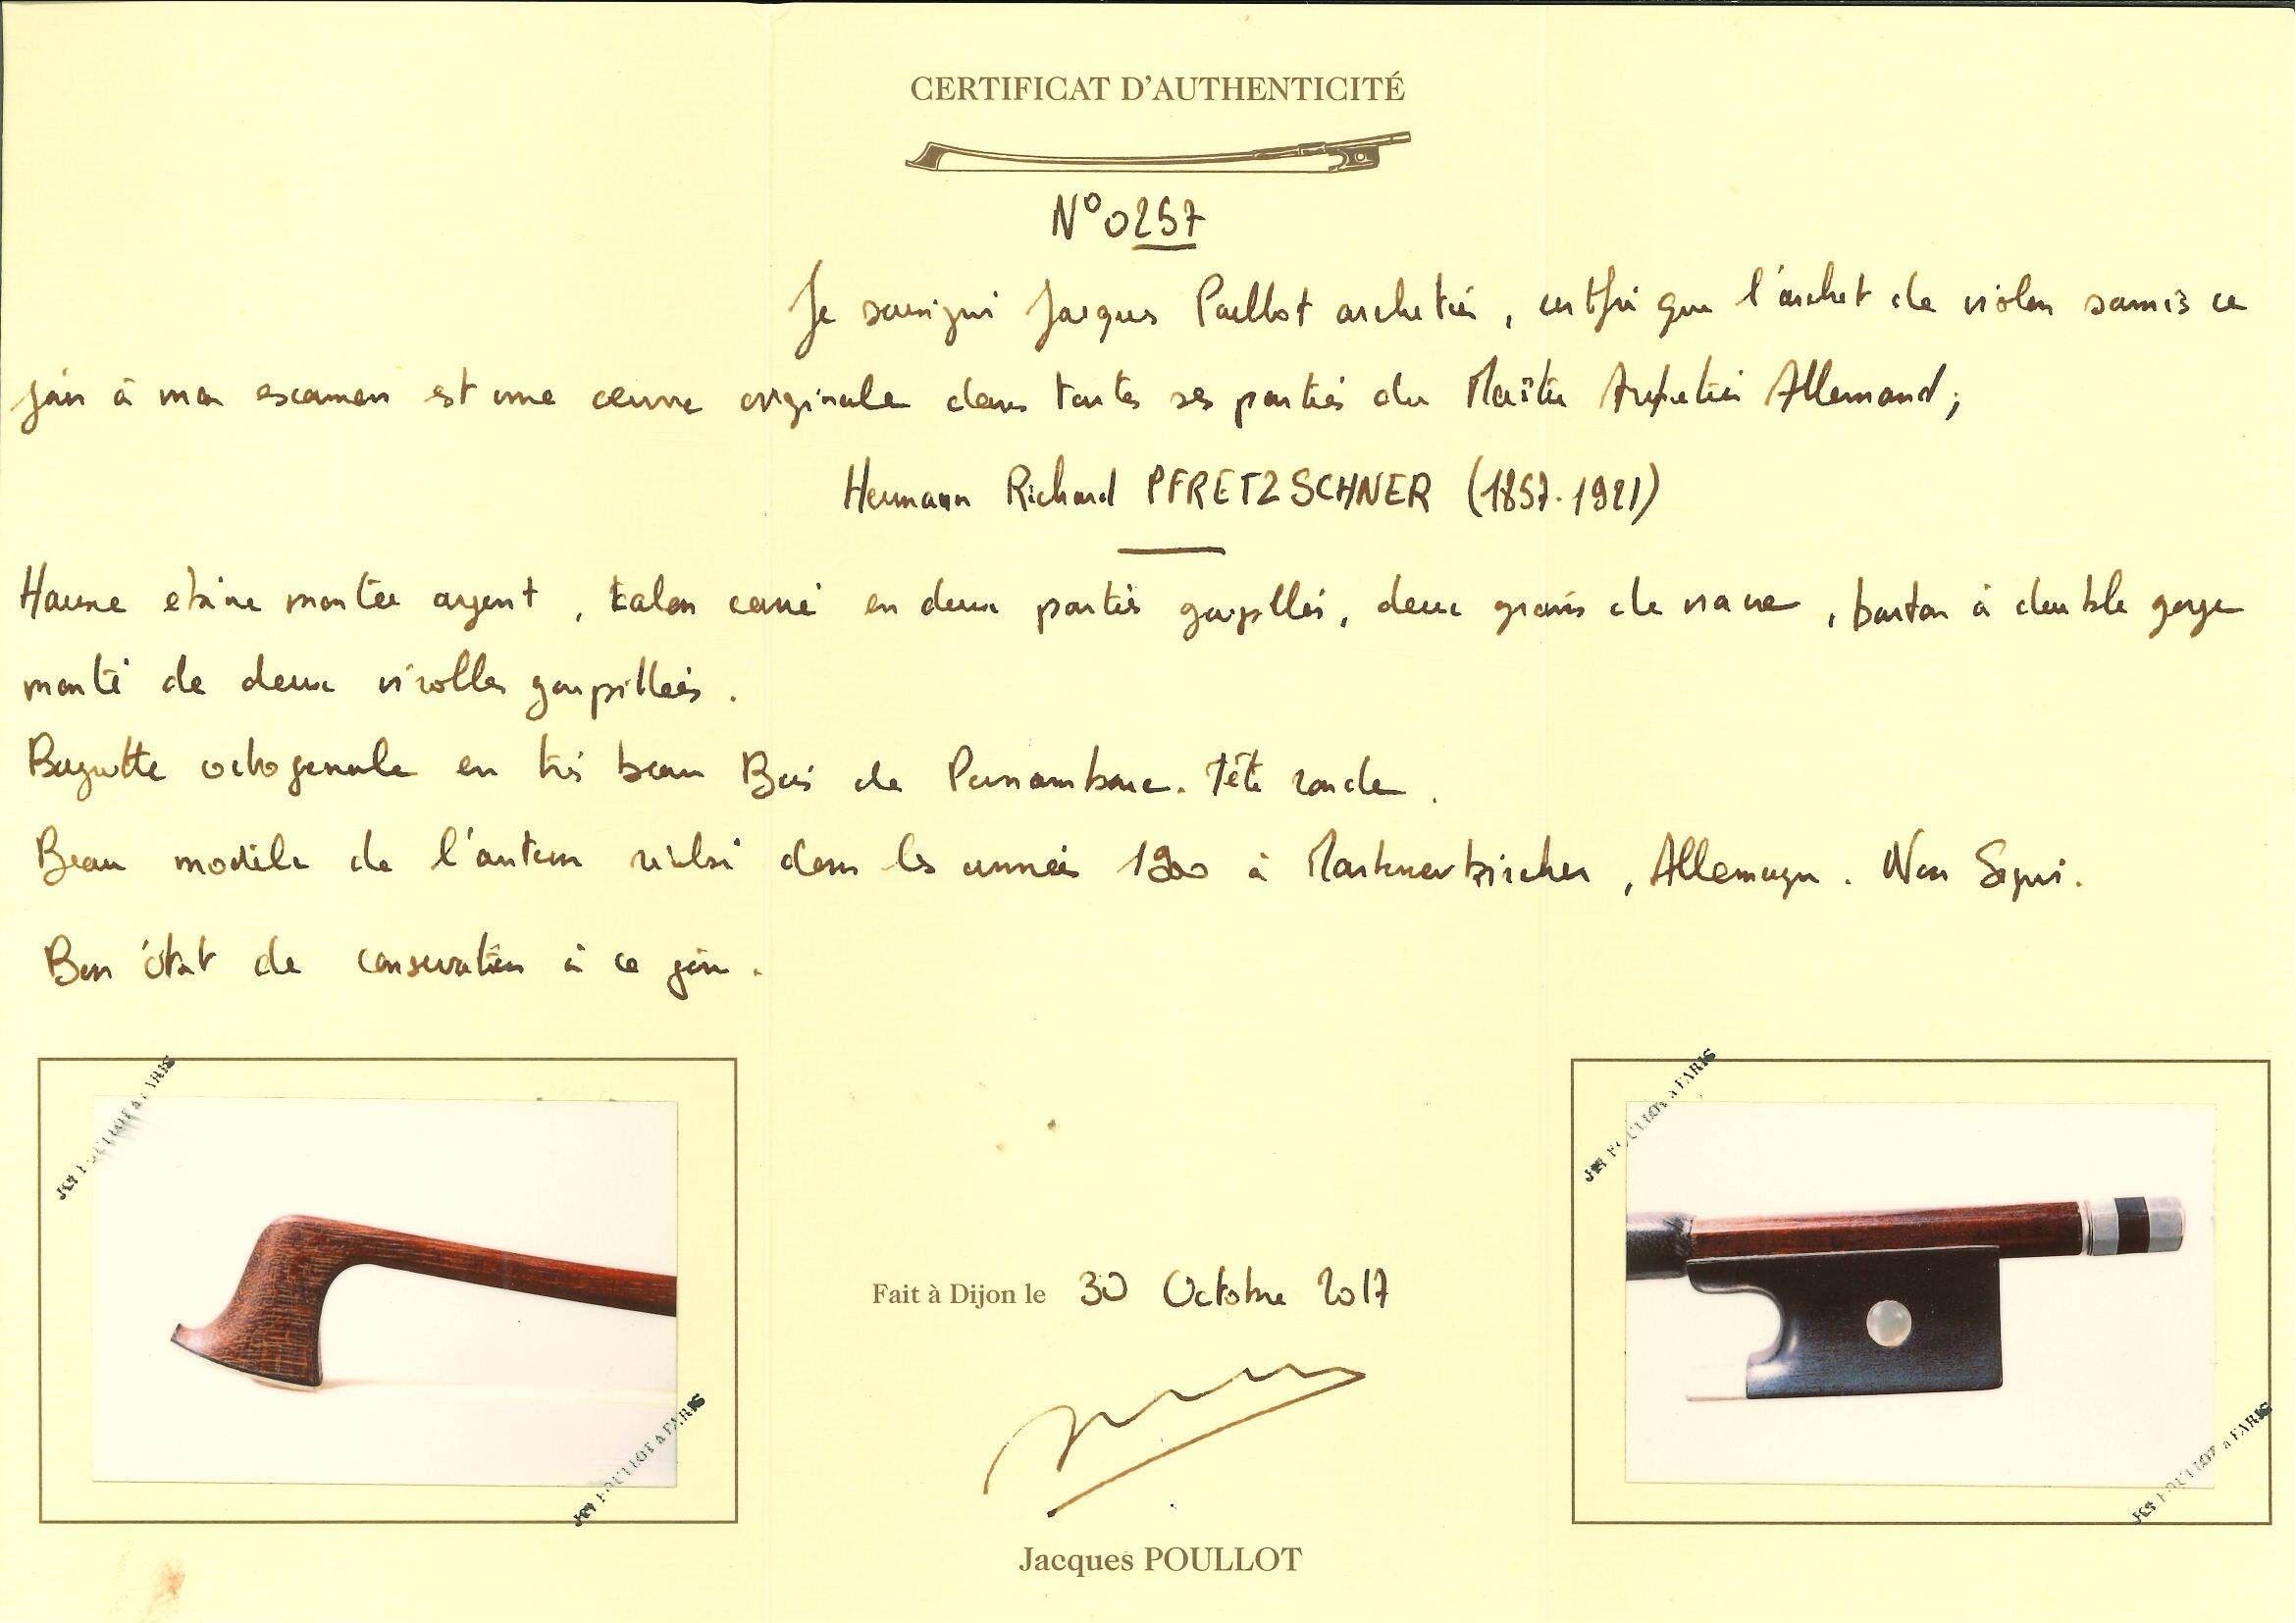 CERTIFICAT D'AUTHENTICITÉ
N° 0257
Je soussigné Jacques Poullot archetier, certifie que l'archet de violon soumis ce
jour à mon examen est une œuvre originale dans toutes ses parties du Maître Archetier Allemand,
Hermann Richard PFRETZSCHNER (1857-1921)
Hausse ebène montée argent, talon carré en deux parties goupillés, deux grains de nacre, bouton à double gorge
monté de deux virolles goupillées.
Baguette octogonale en très beau Bois de Pernambouc. Tête ronde.
Beau modèle de l'auteur réalisé dans les années 1900 à Markneukirchen, Allemagne. Non Signé.
Bon état de conservation à ce jour.
JCS POULLOT à PARIS
JCS POULLOT à PARIS
JCS POULLOT à PARIS
JCS POULLOT à PARIS
Fait à Dijon le 30 Octobre 2017
Jacques POULLOT